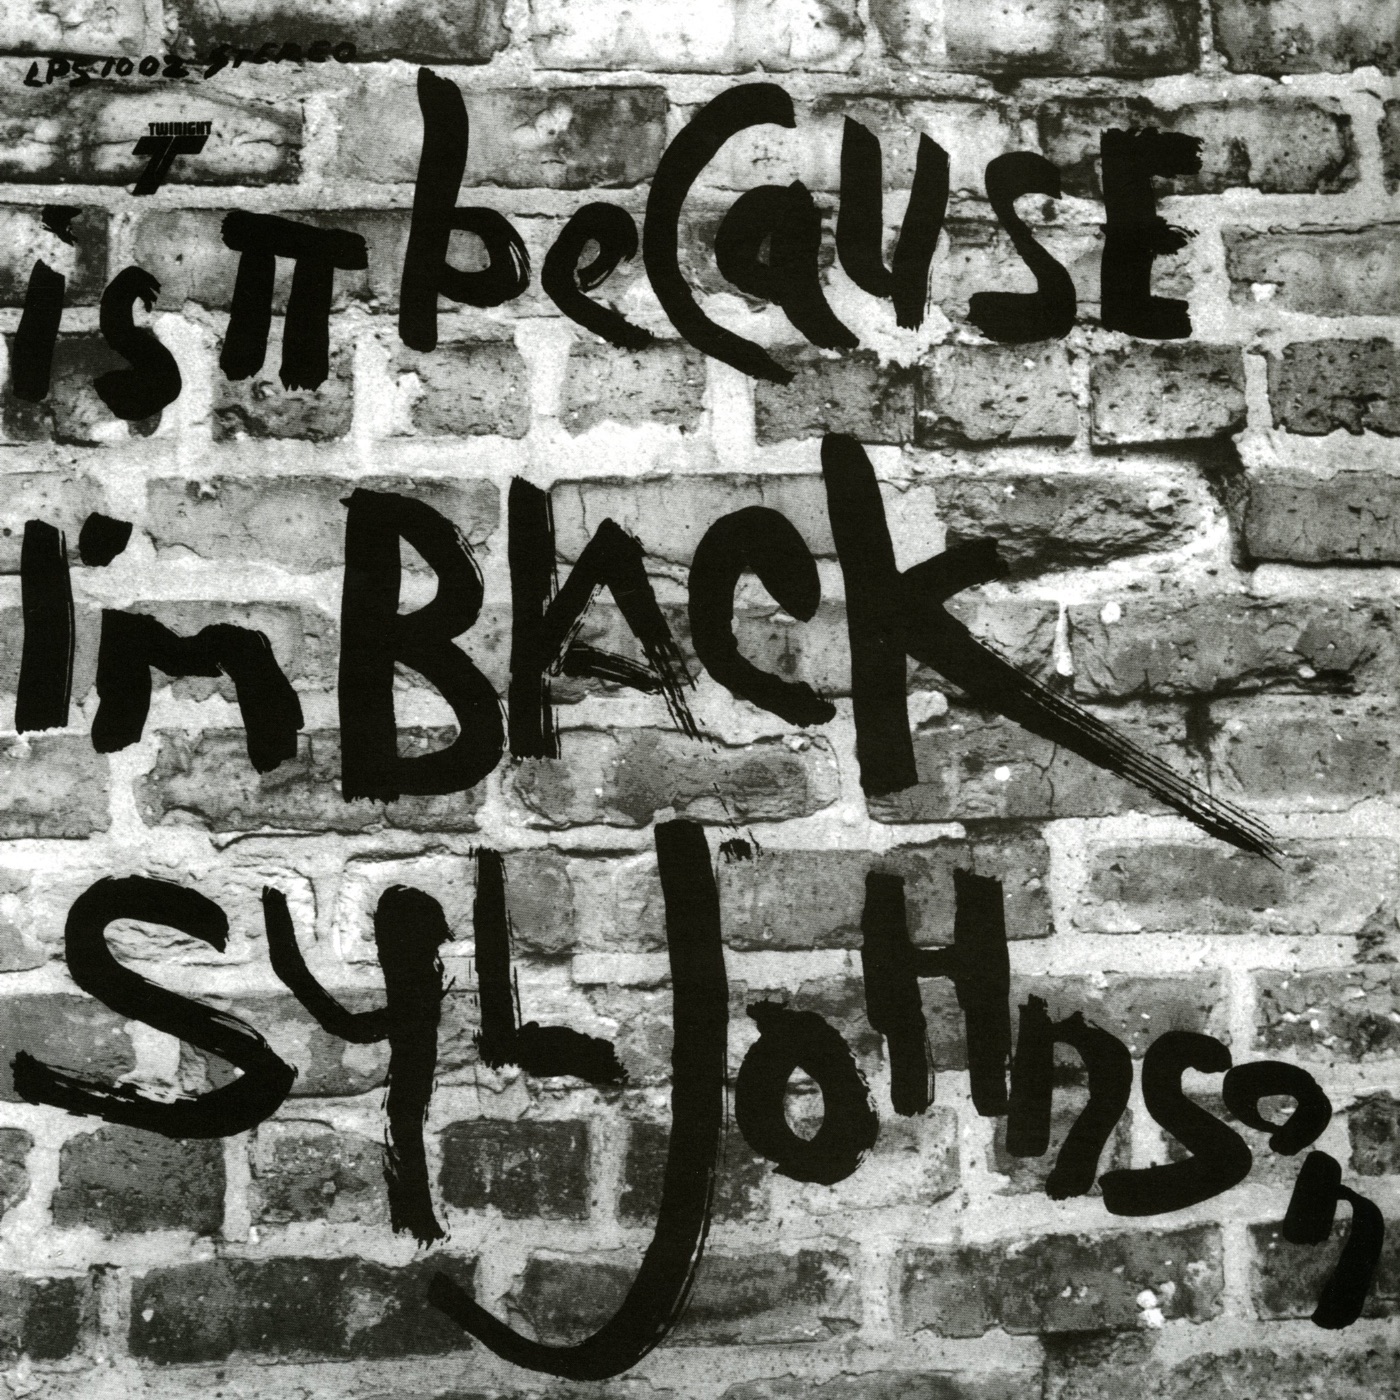 LPS1002 STEREO
TWINIGHT
T
is iT beCaUSE
I'm BlACK
SYL JoHnson